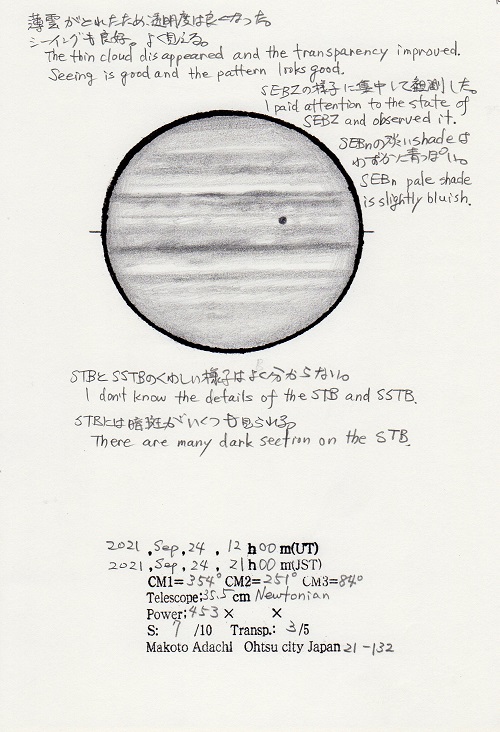 薄雲がとれたため透明度は良くなった。
シーイングも良好。よく見える。
The thin cloud disappeared and the transparency improved.
Seeing is good and the pattern looks good.
SEBZの様子に集中して観測した。
I paid attention to the state of
SEBZ and observed it.
SEBnの淡いshadeは
わずかに青っぽい。
SEBn pale shade
is slightly bluish.
STBとSSTBのくわしい様子はよく分からない。
I don't know the details of the STB and SSTB.
STBには暗斑がいくつも見られる。
There are many dark section on the STB.
2021 ,Sep,24 , 12 h00 m(UT)
2021 ,Sep,24 , 21 h00 m(JST)
CM1=354° CM2=251° CM3=84°
Telescope;35.5cm Newtonian
Power;453× ×
S: 7 /10 Transp.: 3/5
Makoto Adachi Ohtsu city Japan 21-132